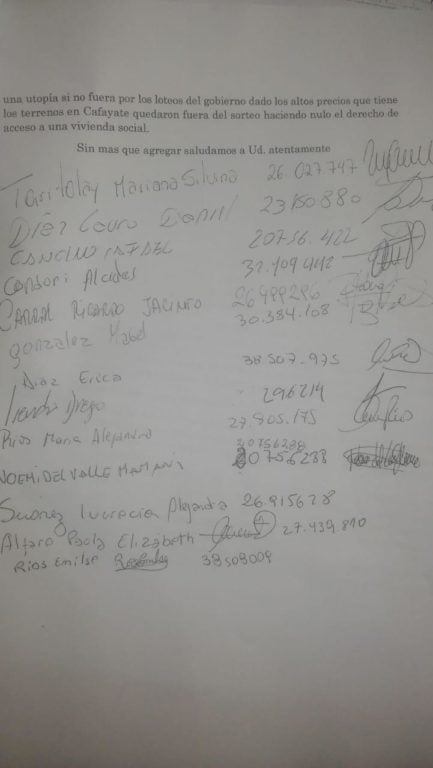 una utopía si no fuera por los loteos del gobierno dado los altos precios que tiene
los terrenos en Cafayate quedaron fuera del sorteo haciendo nulo el derecho de
acceso a una vivienda social.
Sin mas que agregar saludamos a Ud. atentamente
Mariana Silvina 26.027.747
Diez 23150880
CANCINO RAFAEL 20756.422
Alcides 32.909.442
RICARDO JACINTO 26499296
gonzalez 30.384.108
Diaz Erica 38507.975
Diego 296214
Rios Maria Alejandra 27.905.175
20756288
NOEMI DEL VALLE MAMANI 20756288
Suarez Lucrecia Alejandra 26.915628
Alfaro Paola Elizabeth 27.439.810
Rios Emilse 38508009